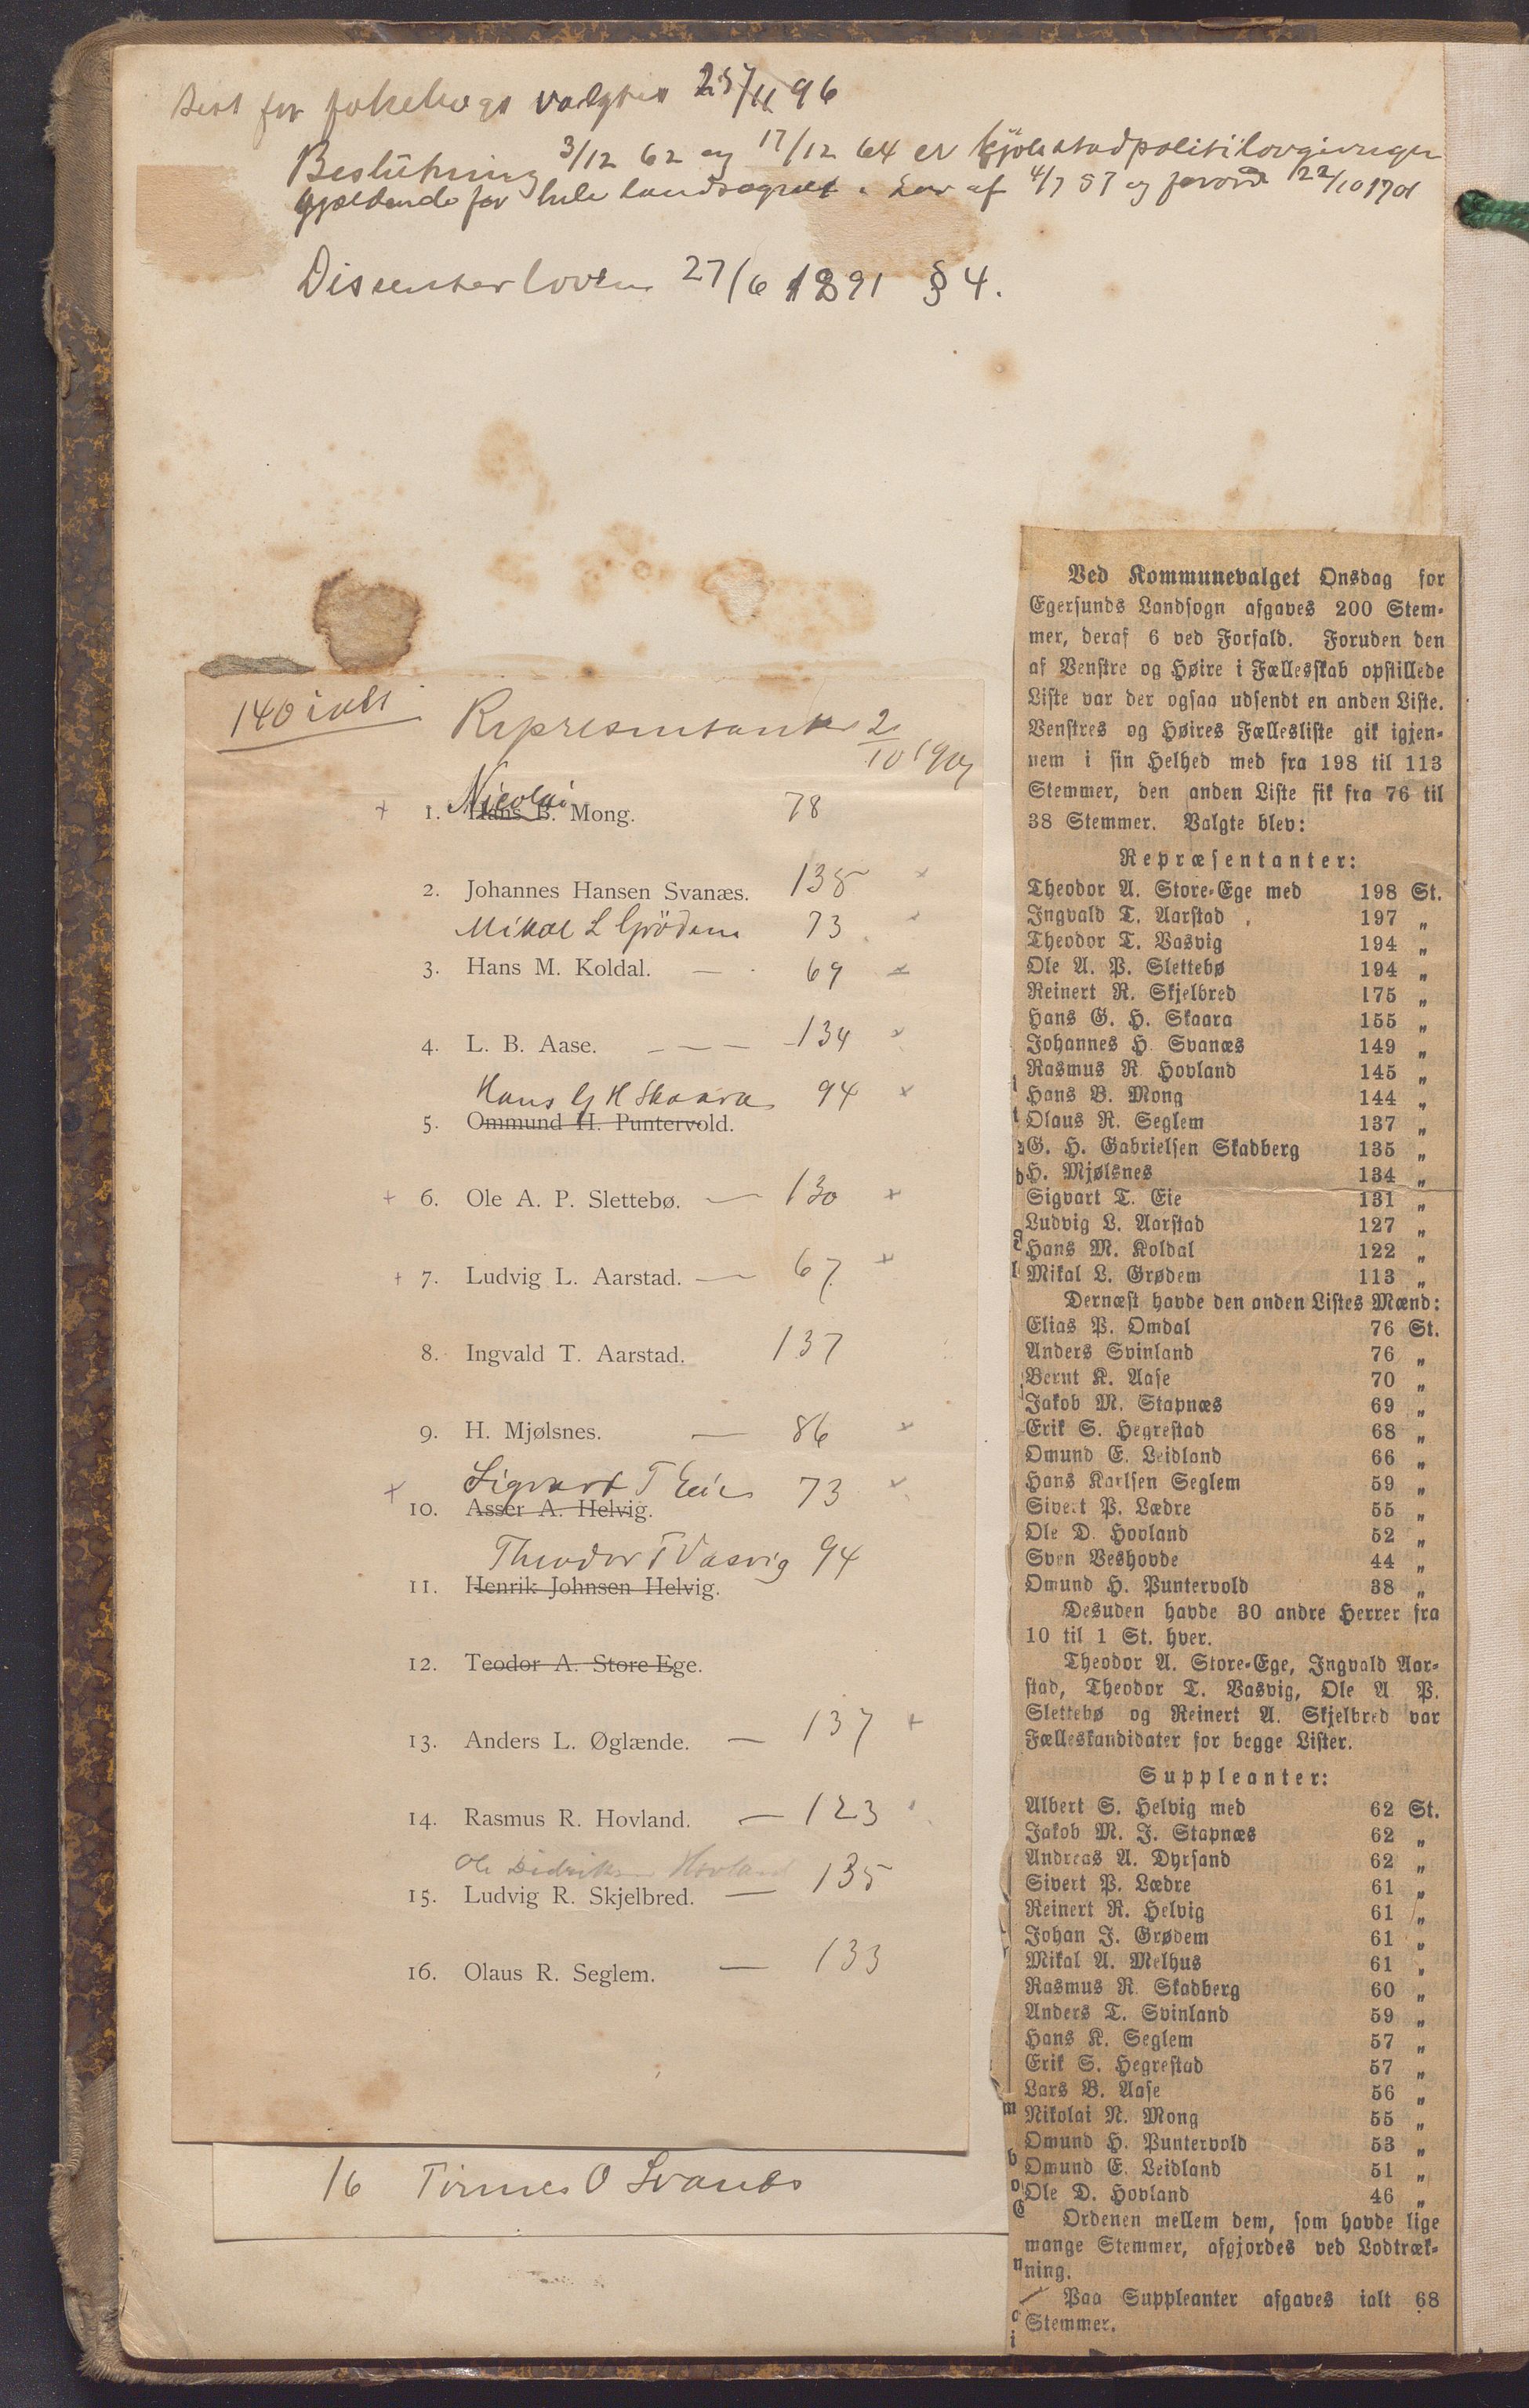 for valgtes 25/11 96
Beslutning 3/12 62 og 17/12 64 er kjøbstadpolitilovgivningen
gjældende for hele landsognet. Lov af 4/7 57 og forord 22/10 1701
Dissenterloven 27/6 1891 § 4.
140 ialt
Representanter 2/10 1904
+ 1. Nicolai Hans B. Mong. 78
2. Johannes Hansen Svanæs. 135 ×
Mikal L Grödem 73
3. Hans M. Koldal. — 69 ×
4. L. B. Aase. — — — 134 ×
Hans G H Skaara 94 ×
5. Ommund H. Puntervold.
+ 6. Ole A. P. Slettebø. — 130 ×
+ 7. Ludvig L. Aarstad. — 67 ×
8. Ingvald T. Aarstad. 137
9. H. Mjølsnes. — 86 ×
× Sigvart T Eie 73 ×
10. Asser A. Helvig.
Theodor T Vasvig 94
11. Henrik Johnsen Helvig.
12. Teodor A. Store-Ege.
13. Anders L. Øglænde. — 137 +
14. Rasmus R. Hovland. — 123
Ole Didriksen Hovland
15. Ludvig R. Skjelbred. — 135
16. Olaus R. Seglem. — 133
16 Tønnes O Svanes
Ved Kommunevalget Onsdag for
Egersunds Landsogn afgaves 200 Stem-
mer, deraf 6 ved Forfald. Foruden den
af Venstre og Høire i Fællesskab opstillede
Liste var der ogsaa udsendt en anden Liste.
Venstres og Høires Fællesliste gik igjen-
nem i sin Helhed med fra 198 til 113
Stemmer, den anden Liste fik fra 76 til
38 Stemmer. Valgte blev:
Repræsentanter:
Theodor A. Store-Ege med 198 St.
Ingvald T. Aarstad 197 „
Theodor T. Vasvig 194 „
Ole A. P. Slettebø 194 „
Reinert R. Skjelbred 175 „
Hans G. H. Skaara 155 „
Johannes H. Svanæs 149 „
Rasmus R. Hovland 145 „
Hans B. Mong 144 „
Olaus R. Seglem 137 „
G. H. Gabrielsen Skadberg 135 „
H. Mjølsnes 134 „
Sigvart T. Eie 131 „
Ludvig L. Aarstad 127 „
Hans M. Koldal 122 „
Mikal L. Grødem 113 „
Dernæst havde den anden Listes Mænd:
Elias P. Omdal 76 St.
Anders Svinland 76 „
Bernt K. Aase 70 „
Jakob M. Stapnæs 69 „
Erik S. Hegrestad 68 „
Omund E. Leidland 66 „
Hans Karlsen Seglem 59 „
Sivert P. Lædre 55 „
Ole D. Hovland 52 „
Sven Veshovde 44 „
Omund H. Puntervold 38 „
Desuden havde 30 andre Herrer fra
10 til 1 St. hver.
Theodor A. Store-Ege, Ingvald Aar-
stad, Theodor T. Vasvig, Ole A. P.
Slettebø og Reinert A. Skjelbred var
Fælleskandidater for begge Lister.
Suppleanter:
Albert S. Helvig med 62 St.
Jakob M. J. Stapnæs 62 „
Andreas A. Dyrsand 62 „
Sivert P. Lædre 61 „
Reinert R. Helvig 61 „
Johan J. Grødem 61 „
Mikal A. Melhus 61 „
Rasmus R. Skadberg 60 „
Anders T. Svinland 59 „
Hans K. Seglem 57 „
Erik S. Hegrestad 57 „
Lars B. Aase 56 „
Nikolai N. Mong 55 „
Omund H. Puntervold 53 „
Omund E. Leidland 51 „
Ole D. Hovland 46 „
Ordenen mellem dem, som havde lige
mange Stemmer, afgjordes ved Lodtræk-
ning.
Paa Suppleanter afgaves ialt 68
Stemmer.